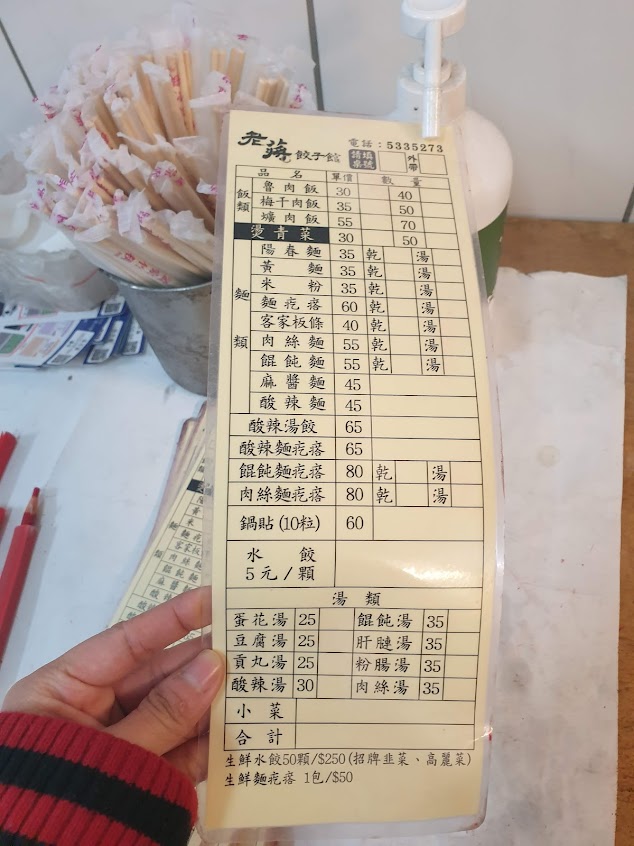 老蔣餃子館 電話:5335273
請填桌號 外帶
品名 單價 數量
飯類
魯肉飯 30 40
梅干肉飯 35 50
爌肉飯 55 70
燙青菜 30 50
麵類
陽春麵 35 乾 湯
黃麵 35 乾 湯
米粉 35 乾 湯
麵疙瘩 60 乾 湯
客家板條 40 乾 湯
肉絲麵 55 乾 湯
餛飩麵 55 乾 湯
麻醬麵 45
酸辣麵 45
酸辣湯餃 65
酸辣麵疙瘩 65
餛飩麵疙瘩 80 乾 湯
肉絲麵疙瘩 80 乾 湯
鍋貼(10粒) 60
水餃
5元/顆
湯類
蛋花湯 25 餛飩湯 35
豆腐湯 25 肝膶湯 35
貢丸湯 25 粉腸湯 35
酸辣湯 30 肉絲湯 35
小菜
合計
生鮮水餃50顆/$250(招牌韭菜、高麗菜)
生鮮麵疙瘩 1包/$50